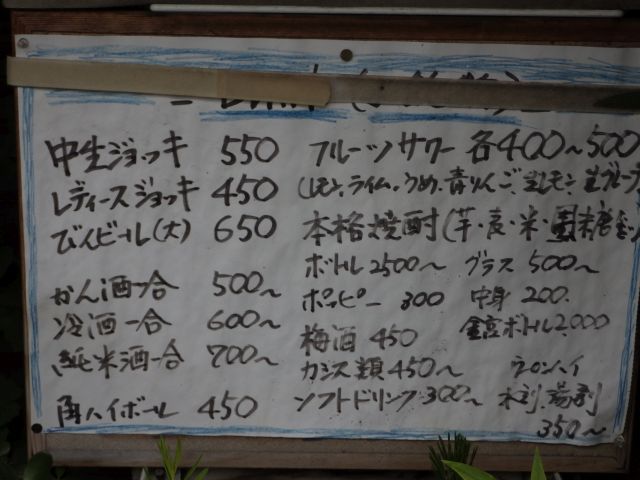 中生ジョッキ 550
レディースジョッキ 450
びんビール(大) 650
かん酒一合 500〜
冷酒一合 600〜
純米酒一合 700〜
角ハイボール 450
フルーツサワー 各400〜500
(レモン、ライム、うめ、青りんご、生レモン、生グレープ
本格焼酎(芋・麦・米・黒糖
ボトル2500〜 グラス 500〜
ホッピー 300 中身 200.
梅酒 450 金宮ボトル2,000
カシス類 450〜 ウーロンハイ
ソフトドリンク 300〜 水割、湯割
350〜